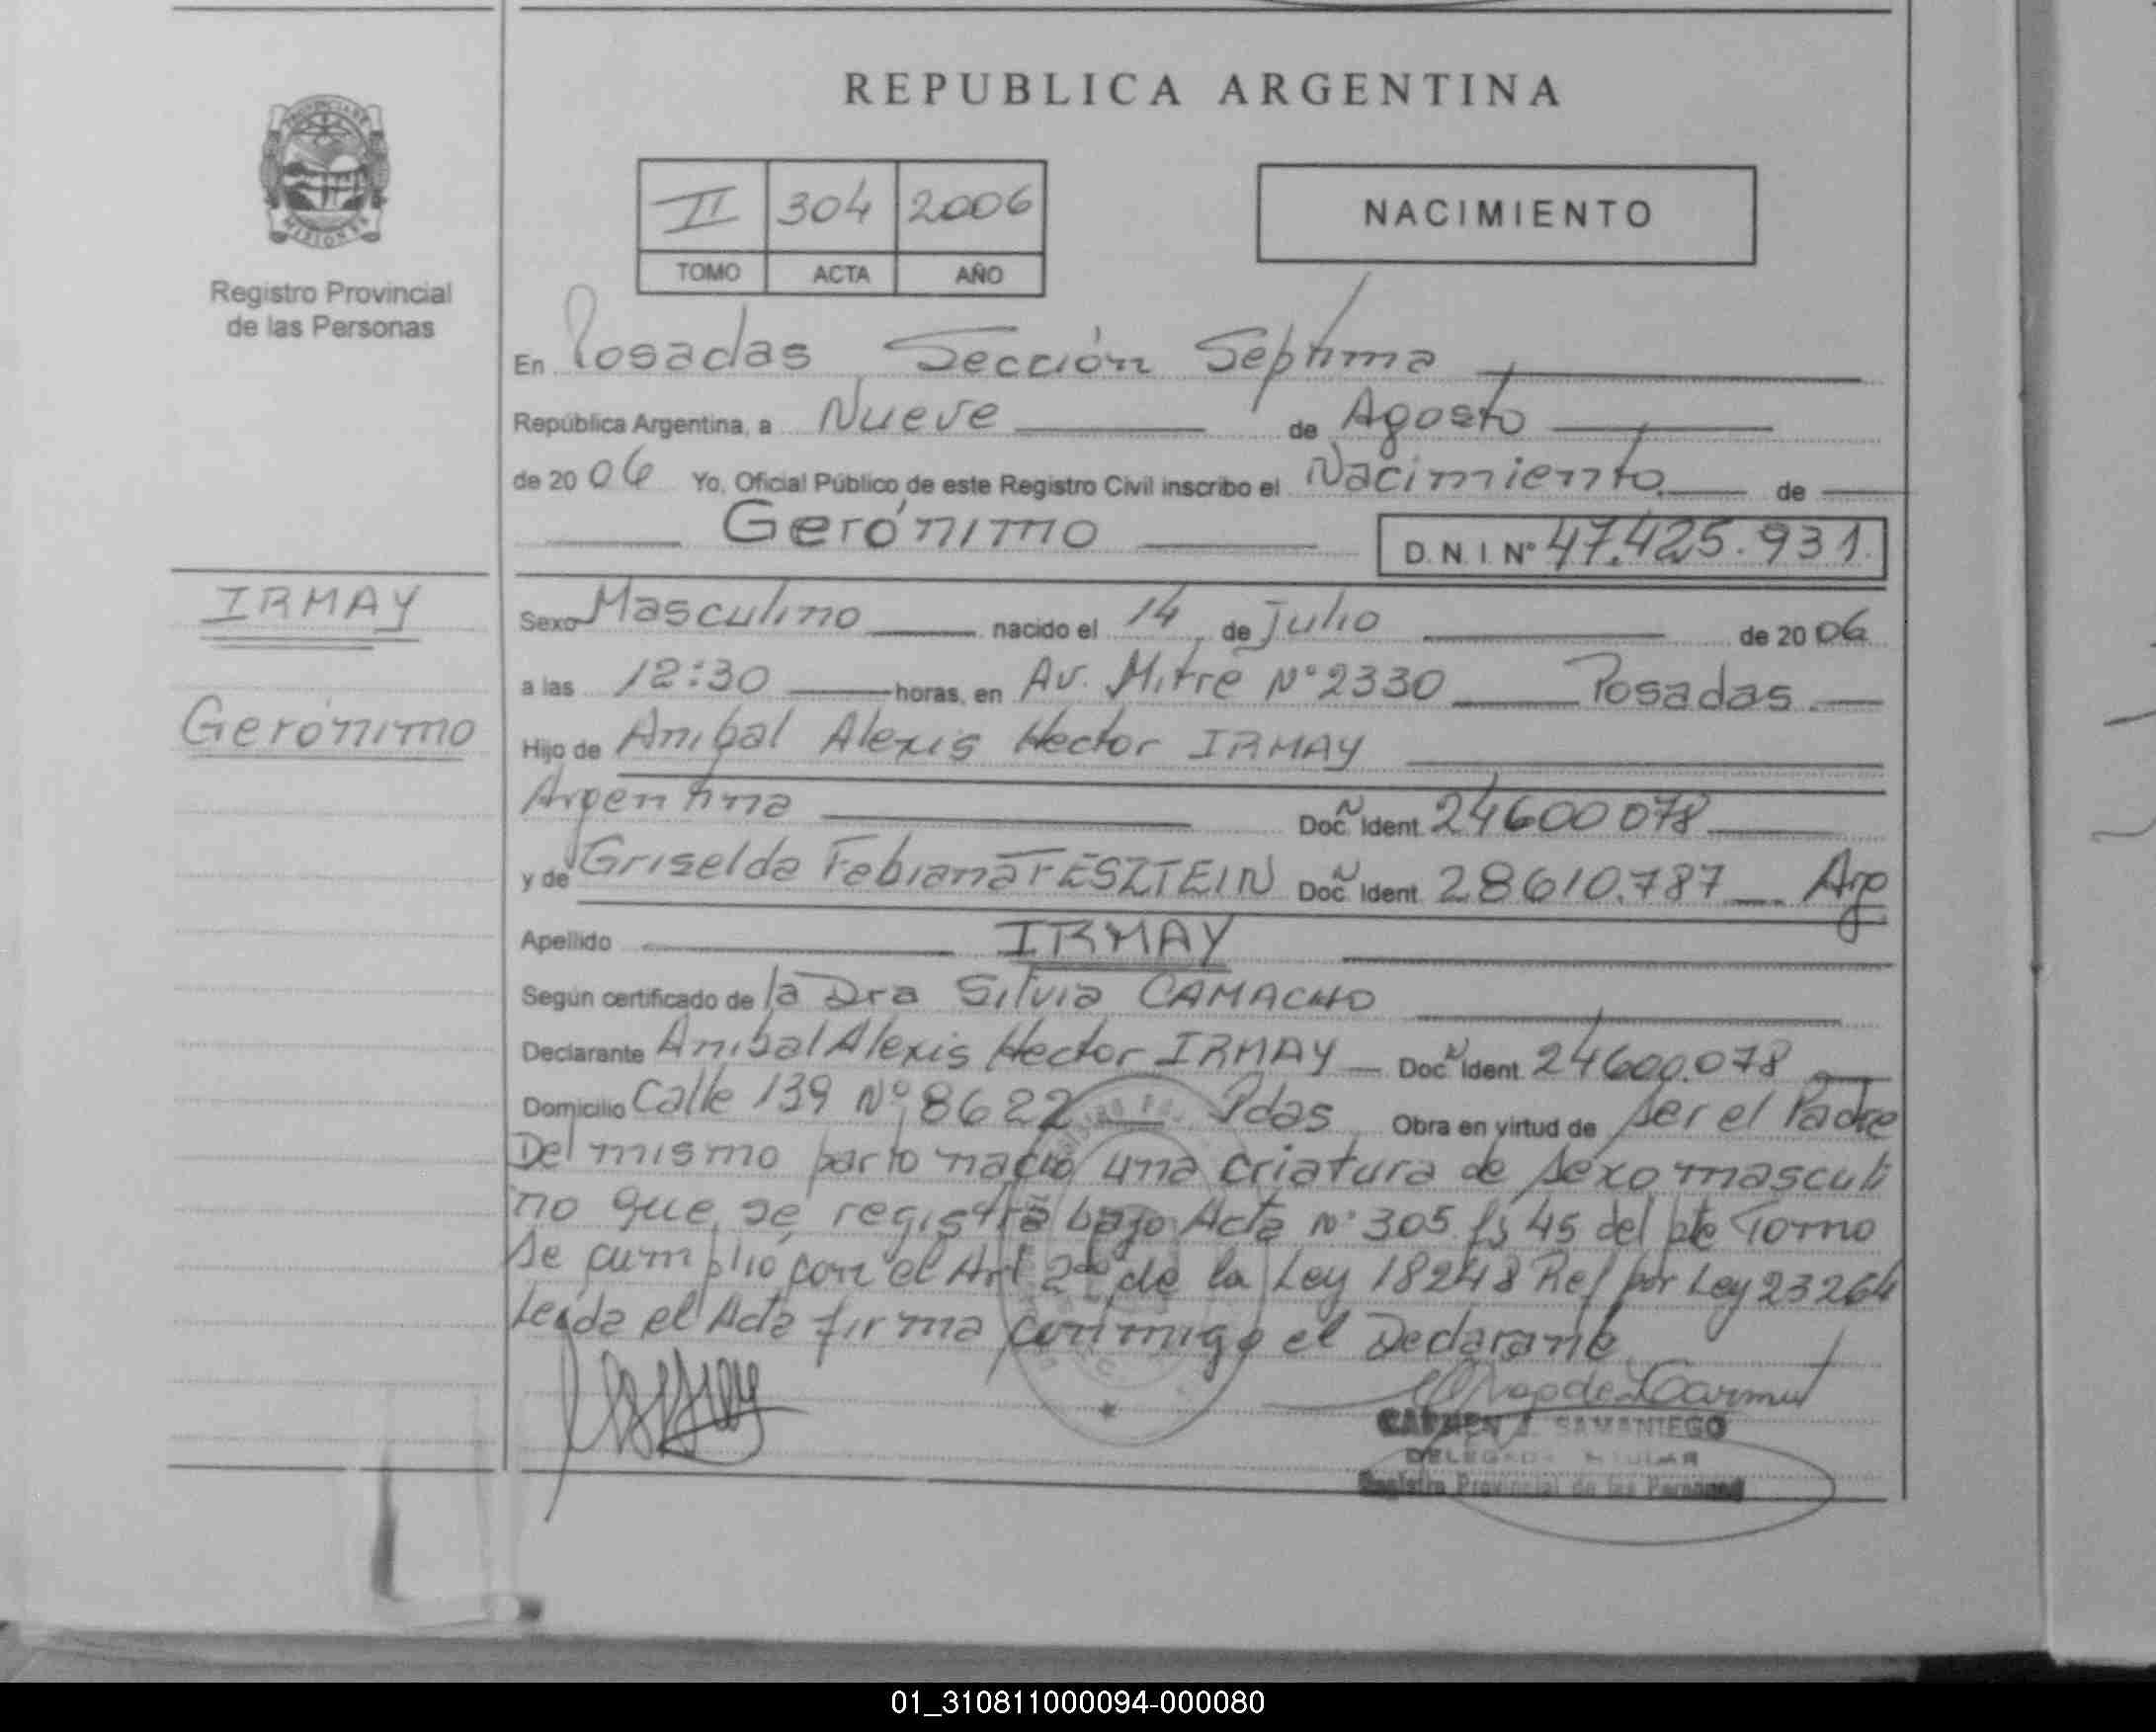 REPUBLICA ARGENTINA
PROVINCIA DE MISIONES
Registro Provincial
de las Personas
II 304 2006
TOMO ACTA AÑO
NACIMIENTO
En Posadas Sección Séptima
República Argentina, a Nueve de Agosto
de 2006 Yo, Oficial Público de este Registro Civil inscribo el Nacimiento de
Gerónimo D.N.I. Nº 47.425.931.
IRMAY
Gerónimo
Sexo Masculino nacido el 14 de Julio de 2006
a las 12:30 horas, en Av. Mitre Nº 2330 Posadas.
Hijo de Anibal Alexis Hector IRMAY
Argentina Doc. Ident. 24600078
y de Griselda Fabiana FESZTEIN Doc. Ident. 28610.787 Arg
Apellido IRMAY
Según certificado de la Dra Silvia CAMACHO
Declarante Anibal Alexis Hector IRMAY Doc. Ident. 24600.078
Domicilio Calle 139 Nº 8622 Pdas Obra en virtud de ser el Padre
Del mismo parto nació una criatura de sexo masculi
no que se registra bajo Acta Nº 305 fs 45 del pte Tomo
Se cumplió con el Art 2do de la Ley 18248 Ref por Ley 23264
Leída el Acta firma conmigo el Declarante
CARMEN J. SAMANIEGO
Registro Provincial de las Personas
01_310811000094-000080